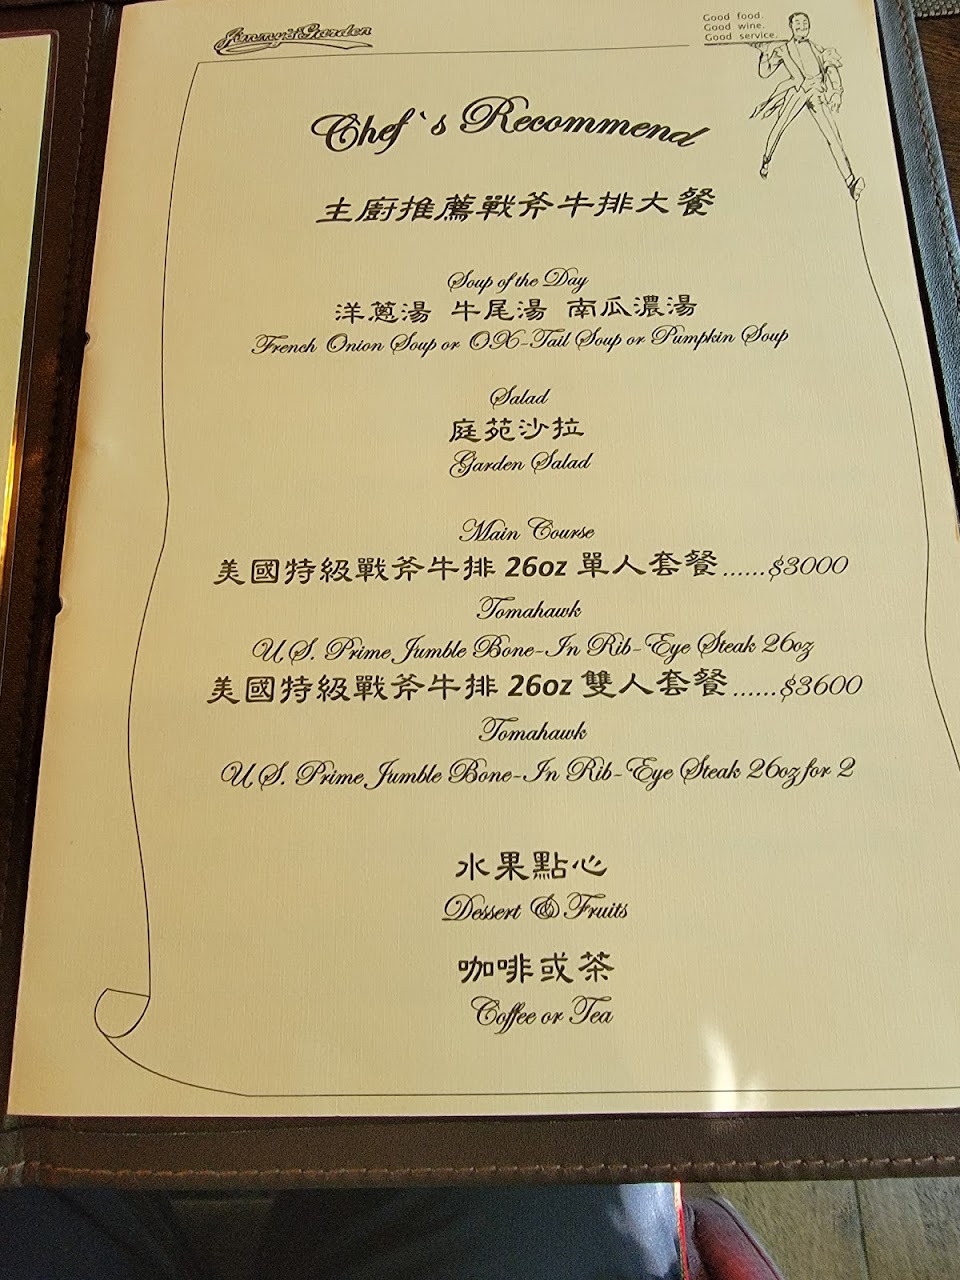 Jimmy's Garden
Good food.
Good wine.
Good service.
Chef`s Recommend
主廚推薦戰斧牛排大餐
Soup of the Day
洋蔥湯 牛尾湯 南瓜濃湯
French Onion Soup or OX-Tail Soup or Pumpkin Soup
Salad
庭苑沙拉
Garden Salad
Main Course
美國特級戰斧牛排 26oz 單人套餐......$3000
Tomahawk
U.S. Prime Jumble Bone-In Rib-Eye Steak 26oz
美國特級戰斧牛排 26oz 雙人套餐......$3600
Tomahawk
U.S. Prime Jumble Bone-In Rib-Eye Steak 26oz for 2
水果點心
Dessert & Fruits
咖啡或茶
Coffee or Tea